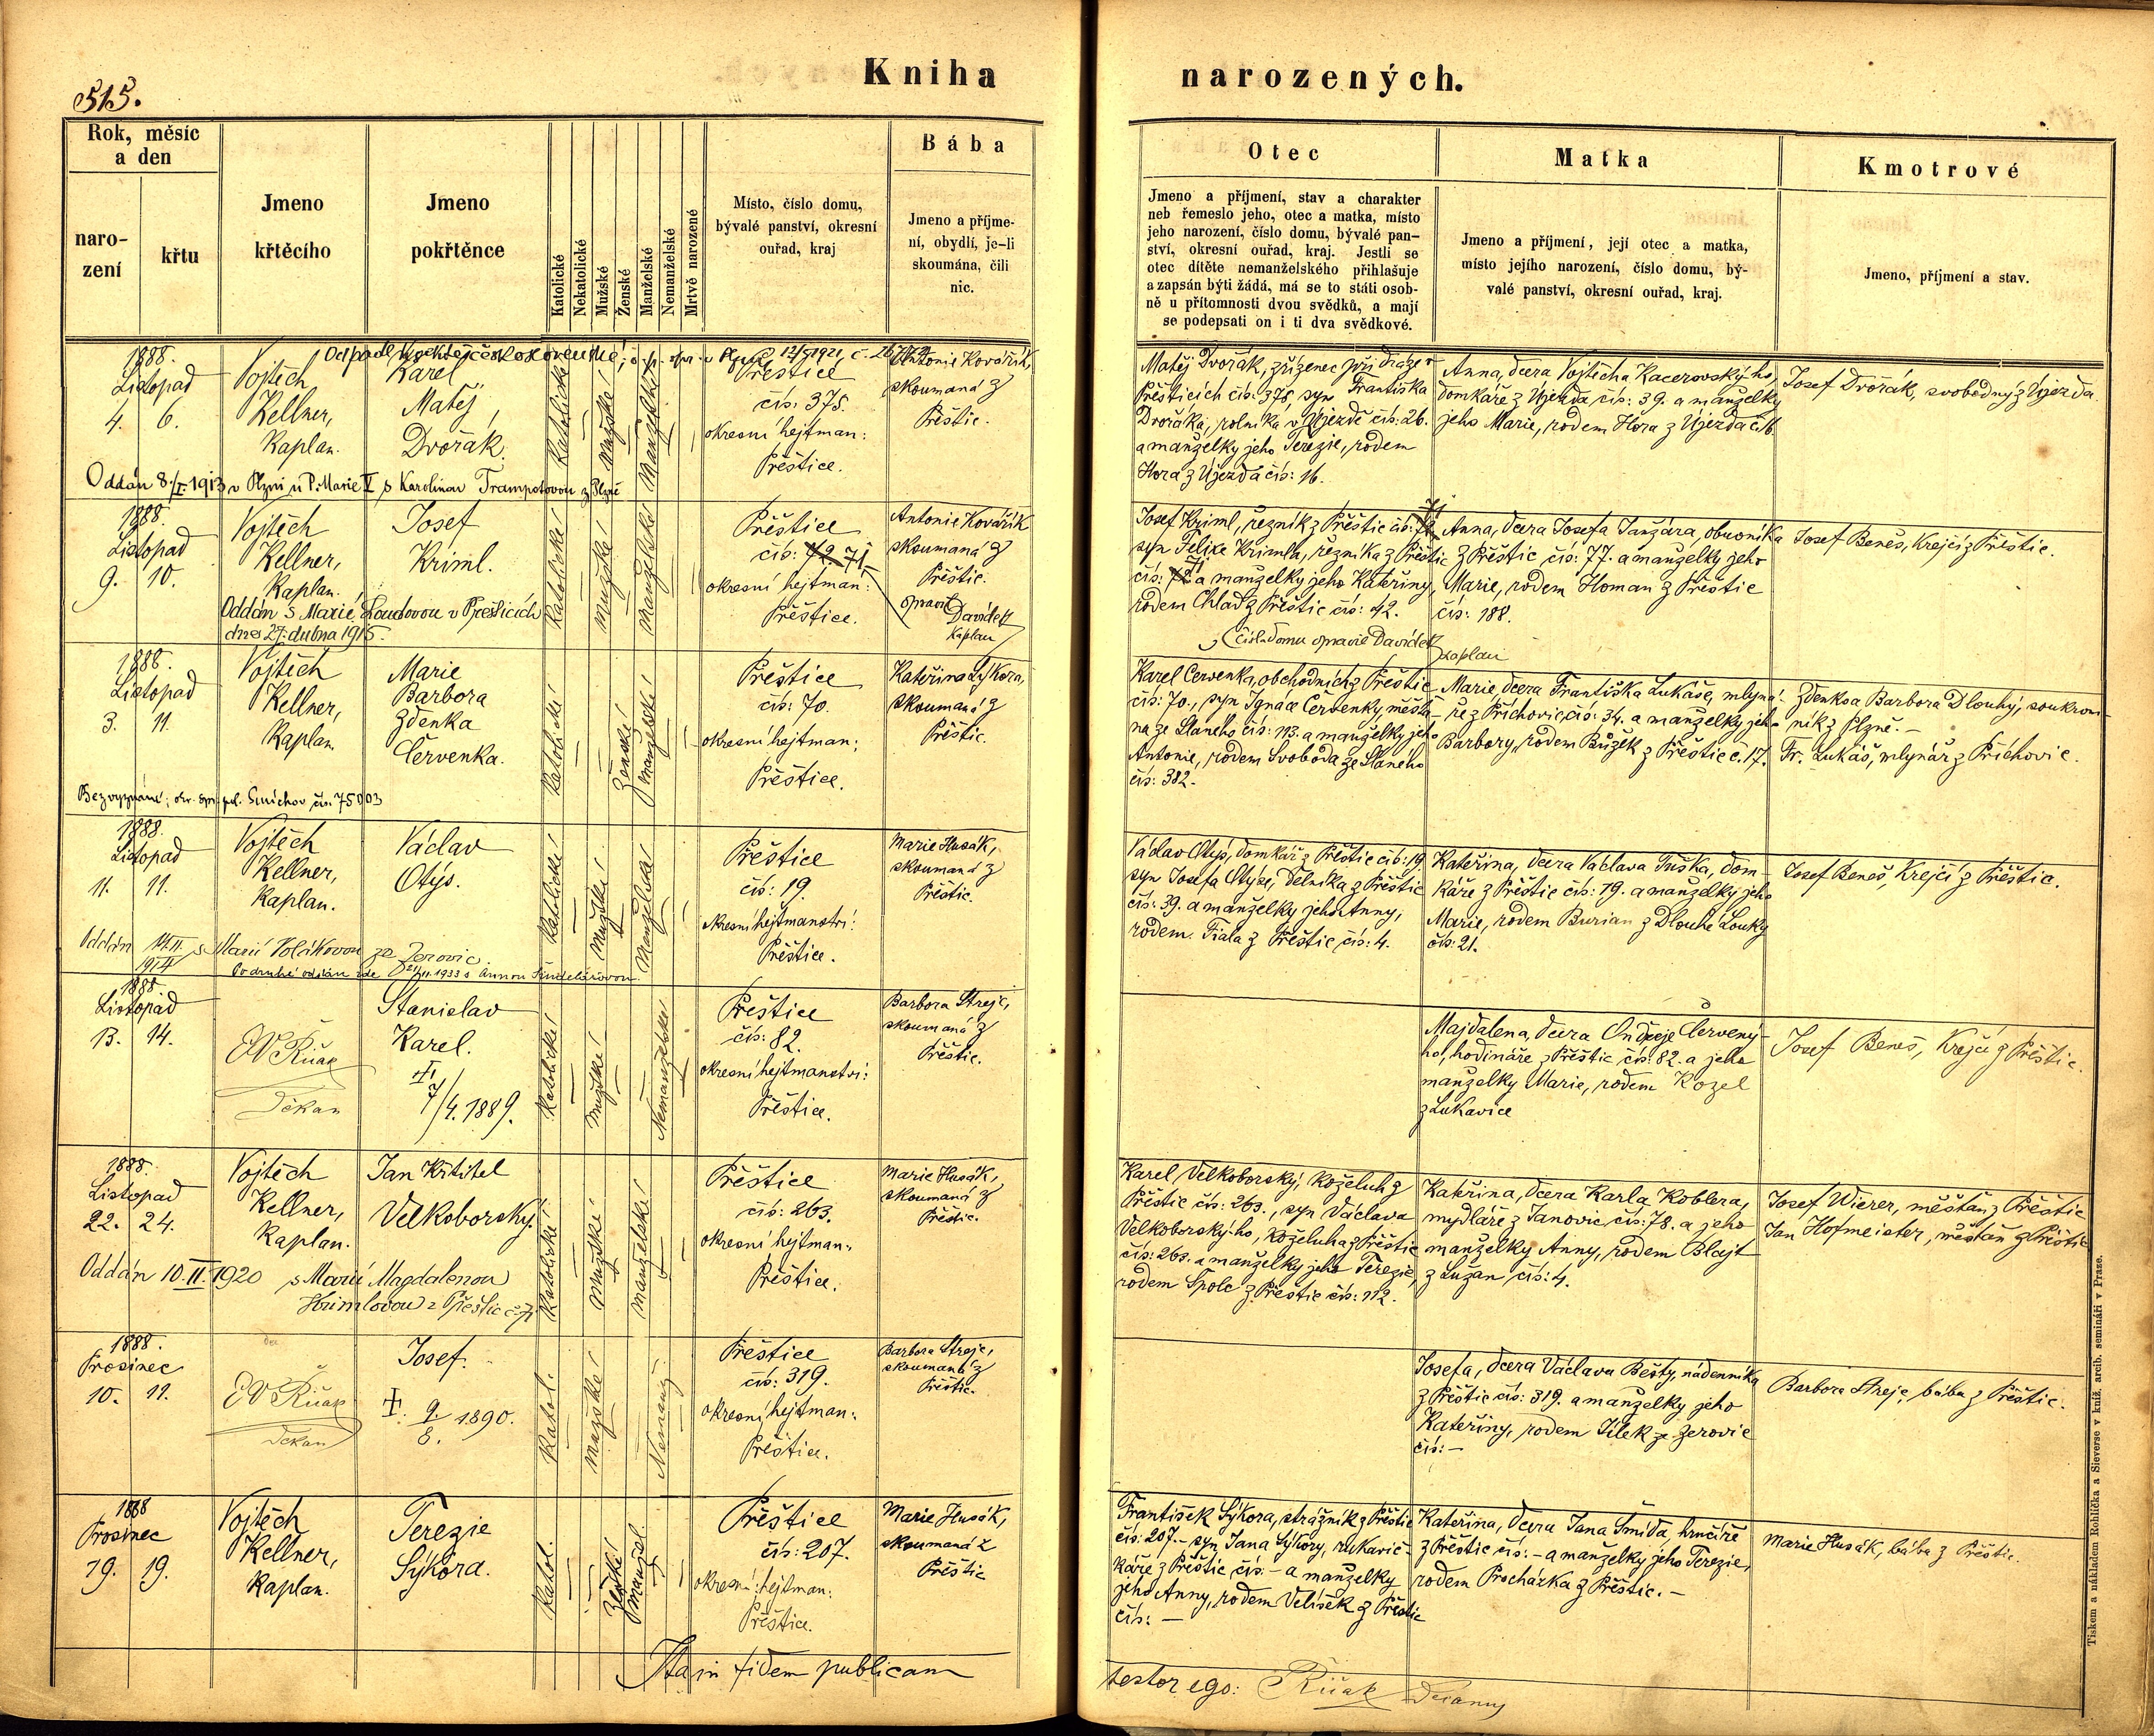 515.
Kniha narozených.
Rok, měsíc
a den
naro-
zení
křtu
Jmeno
křtěcího
Jmeno
pokřtěnce
Katolické
Nekatolické
Mužské
Ženské
Manželské
Nemanželské
Mrtvě narozené
Místo, číslo domu,
bývalé panství, okresní
ouřad, kraj
Bába
Jmeno a příjme-
ní, obydlí, je-li
skoumána, čili
nic.
Otec
Jmeno a příjmení, stav a charakter
neb řemeslo jeho, otec a matka, místo
jeho narození, číslo domu, bývalé pan-
ství, okresní ouřad, kraj. Jestli se
otec dítěte nemanželského přihlašuje
a zapsán býti žádá, má se to státi osob-
ně u přítomnosti dvou svědků, a mají
se podepsati on i ti dva svědkové.
Matka
Jmeno a příjmení, její otec a matka,
místo jejího narození, číslo domu, bý-
valé panství, okresní ouřad, kraj.
Kmotrové
Jmeno, příjmení a stav.
1888.
Listopad
4. 6.
Vojtěch
Kellner,
Kaplan.
Karel
Matěj
Dvořák.
Katolické
Mužské
Manželské
Přeštice
čís: 375.
okresní hejtman:
Přeštice.
Antonie Kovářík,
skoumaná z
Přeštic.
Matěj Dvořák, zřízenec při dráze v
Přešticích čís: 375, syn Františka
Dvořáka, rolníka v Újezdě čís: 26.
a manželky jeho Terezie, rodem
Hora z Újezda čís: 16.
Anna, dcera Vojtěcha Kacerovského,
domkáře z Újezda čís: 39. a manželky
jeho Marie, rodem Hora z Újezda č. 16.
Josef Dvořák, svobodný z Újezda.
Oddán 8./I. 1913 v Plzni u P. Marie s Karolinou Trampotovou z Plzně
1888.
Listopad
9. 10.
Vojtěch
Kellner,
Kaplan.
Josef
Kriml.
Katolické
Mužské
Manželské
Přeštice
čís: 72 71
okresní hejtman:
Přeštice.
Antonie Kovářík
skoumaná z
Přeštic.
opravil
Davídek
Kaplan
Oddán s Marií Loudovou v Přešticích
dne 27. dubna 1915.
Josef Kriml, řezník z Přeštic čís: 72 71
syn Felixe Krimla, řezníka z Přeštic
čís: 72 71 a manželky jeho Kateřiny,
rodem Chlad z Přeštic čís: 42.
Čísla domu opravil Davídek
kaplan
Anna, dcera Josefa Janzára, obuvníka
z Přeštic čís: 77. a manželky jeho
Marie, rodem Homan z Přeštic
čís: 188.
Josef Beneš, Krejčí z Přeštic.
1888.
Listopad
3. 11.
Vojtěch
Kellner,
Kaplan
Marie
Barbora
Zdenka
Červenka.
Katolické
Ženské
Manželské
Přeštice
čís: 70.
okresní hejtman:
Přeštice.
Kateřina Sýkora,
skoumaná z
Přeštic.
Karel Červenka, obchodník z Přeštic
čís: 70., syn Ignáce Červenky, měšťa-
na ze Slaného čís: 193. a manželky jeho
Antonie, rodem Svoboda ze Slaného
čís: 382.
Marie, dcera Františka Lukáše, mlyná-
ře z Příchovic, čís: 34. a manželky jeho
Barbory, rodem Bůžek z Přeštic č. 17.
Zdenka a Barbora Dlouhý, soukrom-
nik z Plzně. -
Fr. Lukáš, mlynář z Příchovic.
Bez vyznání; okr. spr. pol. Smíchov čís. 75003
1888.
Listopad
11. 11.
Vojtěch
Kellner,
Kaplan.
Václav
Otýs.
Katolické
Mužské
Manželské
Přeštice
čís: 19
okresní hejtmanství:
Přeštice.
Marie Husák,
skoumaná z
Přeštic.
Václav Otýs, domkář z Přeštic čís: 19.
syn Josefa Otýse, dělníka z Přeštic
čís: 39. a manželky jeho Anny,
rodem Fiala z Přeštic čís: 4.
Kateřina, dcera Václava Tuška, dom-
káře z Přeštic čís: 19. a manželky jeho
Marie, rodem Burian z Dlouhé Louky
čís: 21.
Josef Beneš, Krejčí z Přeštic.
Oddán 14.II. 1914 s Marií Volákovou ze Žerovic.
Podruhé oddán zde 21/II. 1933 s Annou Šindelářovou
1888
Listopad
13. 14.
Děkan
Stanislav
Karel.
7/4. 1889.
Katolické
Mužské
Nemanželské
Přeštice
čís: 82.
okresní hejtmanství:
Přeštice.
Barbora Strejc,
skoumaná z
Přeštic.
Majdalena, dcera Ondřeje Červený-
ho, hodináře z Přeštic čís: 82. a jeho
manželky Marie, rodem Kozel
z Lukavice
Josef Beneš, Krejčí z Přeštic.
1888.
Listopad
22. 24.
Vojtěch
Kellner,
Kaplan.
Jan Křtitel
Velkoborský.
Katolické
Mužské
Manželské
Přeštice
čís: 263.
okresní hejtman:
Přeštice.
Marie Husák,
skoumaná z
Přeštic.
Karel Velkoborský, Koželuh z
Přeštic čís: 263., syn Václava
Velkoborského, Koželuha z Přeštic
čís: 263. a manželky jeho Terezie,
rodem Spolc z Přeštic čís: 112.
Kateřina, dcera Karla Koblera,
mydláře z Janovic čís: 78. a jeho
manželky Anny, rodem Blajt
z Lužan čís: 4.
Josef Wierer, měšťan z Přeštic
Jan Hofmeister, měšťan z Přeštic
Oddán 10.II. 1920 s Marií Magdalenou
z Přeštic
1888.
Prosinec
10. 11.
Děkan
Josef.
9. 8. 1890.
Katol.
Mužské
Nemanž.
Přeštice
čís: 319.
okresní hejtman:
Přeštice.
Barbora Strejc,
skoumaná z
Přeštic.
Josefa, dcera Václava Bešty, nádenníka
z Přeštic čís: 319. a manželky jeho
Kateřiny, rodem Jílek ze Žerovic
čís: -
Barbora Strejc, bába z Přeštic.
1888
Prosinec
19. 19.
Vojtěch
Kellner,
Kaplan.
Terezie
Sýkora.
Katol.
Ženské
Manžel
Přeštice
čís: 207.
okresní hejtman:
Přeštice.
Marie Husák,
skoumaná z
Přeštic
František Sýkora, strážník z Přeštic
čís: 207. - syn Jana Sýkory, rukavič-
káře z Přeštic čís: - a manželky
jeho Anny, rodem Velíšek z Přeštic
čís: -
Kateřina, dcera Jana Šmída, hrnčíře
z Přeštic čís: - a manželky jeho Terezie,
rodem Procházka z Přeštic. -
Marie Husák, bába z Přeštic.
Ita in fidem publicam
testor ego:
Tiskem a nákladem Rohlíčka a Sieverse v kníž. arcib. semináři v Praze.